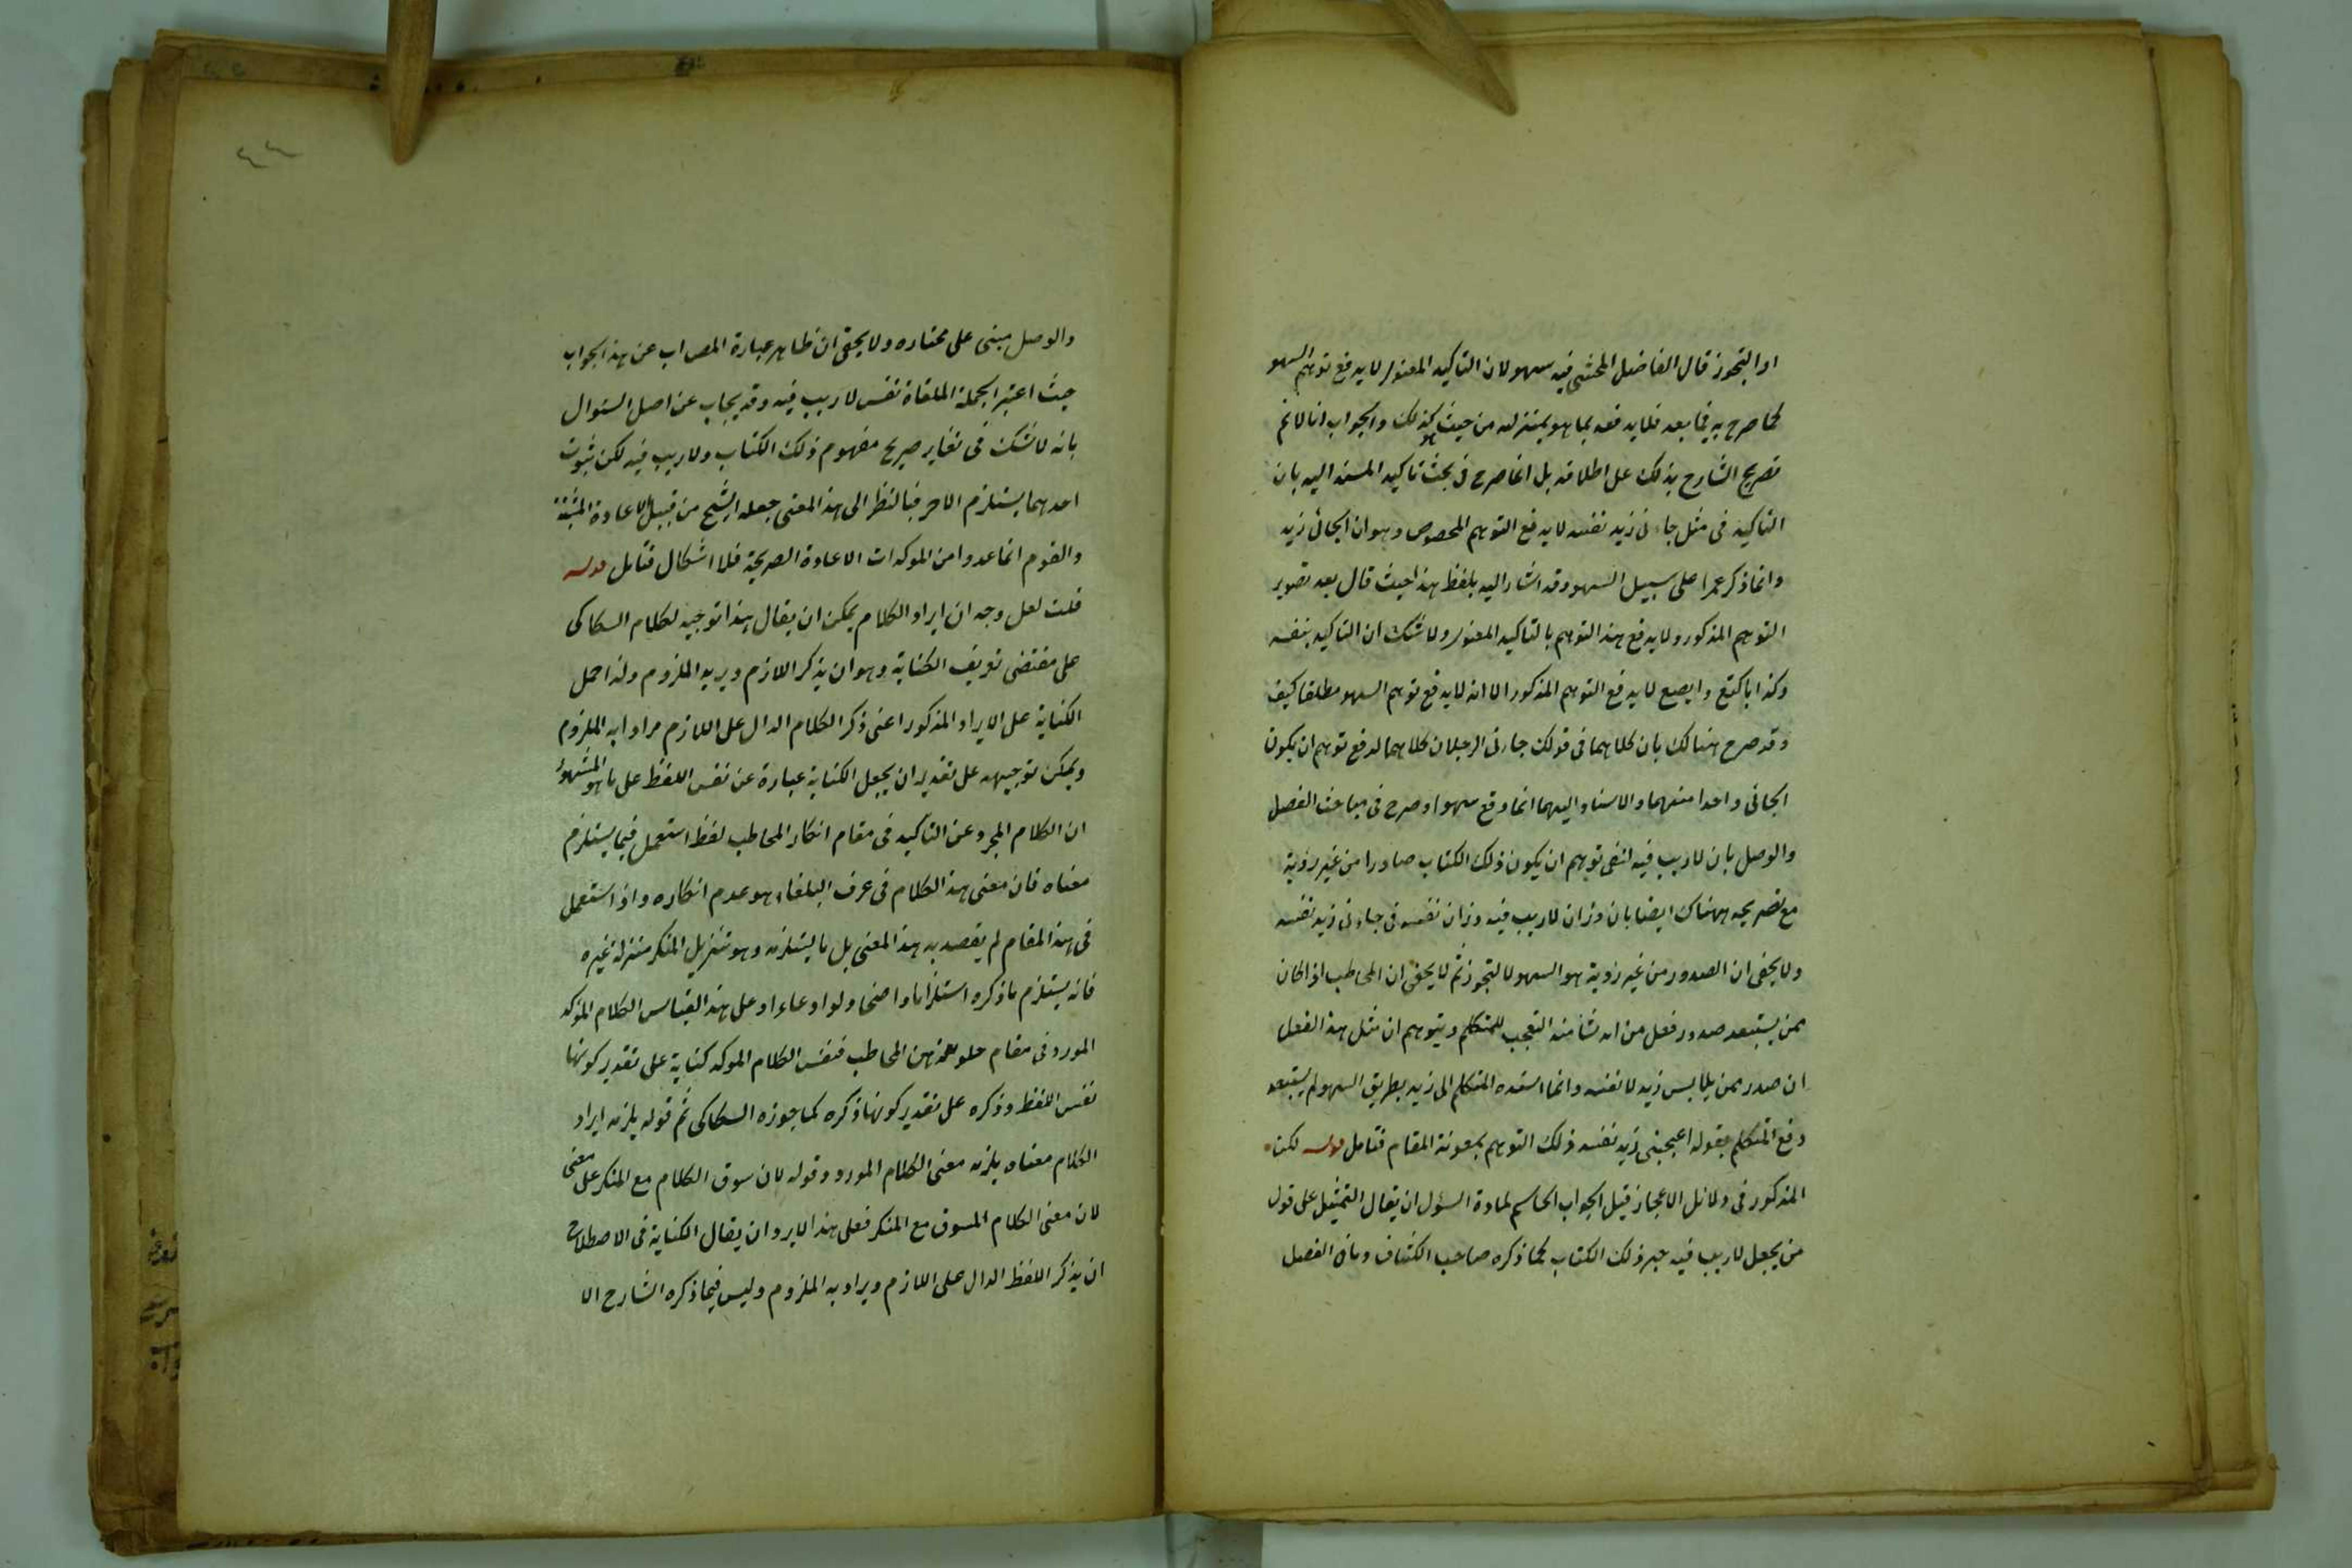 او التجوز قال الفاضل المحشى فيه سهو لان التاكيد المعنوى لا يدفع توهم السهو
كما صرح به فيما بعد فلا يدفعه بما هو بمنزلته من حيث هو كذلك والجواب انا لا نم
تصريح الشارح بذلك على اطلاقه بل انما صرح فى بحث تاكيد المسند اليه بان
التاكيد فى مثل جاءنى زيد نفسه لا يدفع التوهم المخصوص وهو ان الجائى زيد
وانما ذكر عمرا على سبيل السهو وقد اشار اليه بلفظ هذا حيث قال بعد تصوير
التوهم المذكور ولا يدفع هذا التوهم بالتاكيد المعنوى ولا شك ان التاكيد بنفسه
وكذا باكتع وابصع لا يدفع التوهم المذكور الا انه لا يدفع توهم السهو مطلقا كيف
وقد صرح هنالك بان كلاهما فى قولك جاءنى الرجلان كلاهما لدفع توهم ان يكون
الجائى واحدا منهما والاسناد اليهما انما وقع سهوا وصرح فى مباحث الفصل
والوصل بان لا ريب فيه لنفى توهم ان يكون ذلك الكتاب صادرا من غير روية
مع تصريحه هناك ايضا بان وزان لا ريب فيه وزان نفسه فى جاءنى زيد نفسه
ولا يخفى ان الصدور من غير روية هو السهو لا التجوز ثم لا يخفى ان المخاطب اذا كان
ممن يستبعد صدور فعل من انه نشأ منه التعجب للمتكلم ويتوهم ان مثل هذا الفعل
ان صدر ممن يلابس زيد لا نفسه وانما اسنده المتكلم الى زيد بطريق السهو لم يستبعد
دفع المتكلم بقوله اعجبنى زيد نفسه ذلك التوهم بمعونة المقام فتامل قوله لكن
المذكور فى دلائل الاعجاز قيل الجواب الحاسم لمادة السؤل ان يقال التمثيل على قول
من يجعل لا ريب فيه خبر ذلك الكتاب كما ذكره صاحب الكشاف وما فى الفصل
٤٤
والوصل مبنى على مختاره ولا يخفى ان ظاهر عبارة المص اب عن هذا الجواب
حيث اعتبر الجملة الملقاة نفس لا ريب فيه وقد يجاب عن اصل السئوال
بانه لا شك فى تغاير صريح مفهوم ذلك الكتاب ولا ريب فيه لكن ثبوت
احدهما يستلزم الاخر فبالنظر الى هذا المعنى جعله الشيخ من قبيل الاعادة
والقوم انما عدوا من الموكدات الاعادة الصريحة فلا اشكال فتامل قوله
قلت لعل وجه ان ايراد الكلام يمكن ان يقال هذا توجيه لكلام السكاكى
على مقتضى تعريف الكناية وهو ان يذكر اللازم ويريد الملزوم ولذا حمل
الكناية على الايراد المذكور اعنى ذكر الكلام الدال على اللازم مرادا به الملزوم
ويمكن توجيهه على تقدير ان يجعل الكناية عبارة عن نفس اللفظ على ما هو المشهور
ان الكلام المجرد عن التاكيد فى مقام انكار المخاطب لفظ استعمل فيما يستلزم
معناه فان معنى هذا الكلام فى عرف البلغاء هو عدم انكاره واذا استعمل
فى هذا المقام لم يقصد به هذا المعنى بل ما يستلزمه وهو تنزيل المنكر منزلة غيره
فانه يستلزم ما ذكره استلزاما واضحا ولو ادعاء او على هذا القياس الكلام الموكد
المورد فى مقام خلو ذهن المخاطب فنفس الكلام الموكد كناية على تقدير كونها
نفس اللفظ وذكره على تقدير كونها ذكره كما جوزه السكاكى ثم قوله يلزمه ايراد
الكلام معناه يلزمه معنى الكلام المورد وقوله لان سوق الكلام مع المنكر على معنى
لان معنى الكلام المسوق مع المنكر فعلى هذا لا يرد ان يقال الكناية فى الاصطلاح
ان يذكر اللفظ الدال على اللازم ويراد به الملزوم وليس فيما ذكره الشارح الا